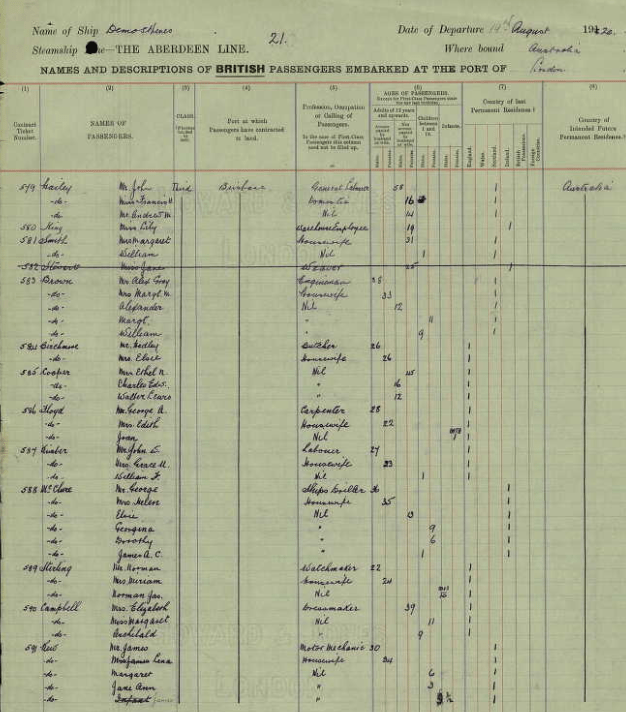 Name of Ship Demosthenes Date of Departure 19th August 1920.
21.
Steamship Line—THE ABERDEEN LINE. Where bound Australia
NAMES AND DESCRIPTIONS OF BRITISH PASSENGERS EMBARKED AT THE PORT OF London
(1) (2) (3) (4) (5) (6) (7) (8)
Contract Ticket Number. NAMES OF PASSENGERS. CLASS. Port at which Passengers have contracted to land. Profession, Occupation or Calling of Passengers. AGES OF PASSENGERS. Country of last Permanent Residence. Country of Intended Future Permanent Residence.
Adults of 12 years and upwards. Children between 1 and 12. Infants.
Males. Females. Males. Females. Males. Females. Males. Females. England. Wales. Scotland. Ireland. British Possessions. Foreign Countries.
579 Mr. John Third Brisbane General Labourer 58 1 Australia
-do- Domestic 16 1
-do- Mr. Andrew M. Nil 14 1
580 King Miss Lily Warehouse Employee 19 1
581 Smith Mrs Margaret Housewife 31 1
-do- William Nil 1 1
582 Stewart Miss Jane Weaver 25 1
583 Brown Mr. Alex. Gray Engineman 28 1
-do- Mrs Margt. M. Housewife 33 1
-do- Alexander Nil 12 1
-do- Margt. " 11 1
-do- William " 9 1
584 Birchmore Mr. Hedley Butcher 26 1
-do- Mrs. Elsie Housewife 26 1
585 Cooper Mrs Ethel N. Nil 45 1
-do- Charles Edw. " 16 1
-do- Walter Lewis " 12 1
586 Lloyd Mr. George A. Carpenter 28 1
-do- Mrs. Edith Housewife 22 1
-do- Joan Nil 1
587 Kimber Mr. John E. Labourer 27 1
-do- Mrs. Grace M. Housewife 23 1
-do- William F. Nil 1 1
588 McClure Mr. George Ships Driller 36 1
-do- Mrs Helen Housewife 35 1
-do- Elsie Nil 13 1
-do- Georgina " 9 1
-do- Dorothy " 6 1
-do- James A. C. " 1 1
589 Stirling Mr. Norman Watchmaker 22 1
-do- Mrs Miriam Housewife 24 1
-do- Norman Jas. Nil 1
590 Campbell Mrs. Elizabeth Dressmaker 39 1
-do- Miss Margaret Nil 11 1
-do- Archibald " 9 1
591 Mr. James Motor Mechanic 30 1
-do- Housewife 24 1
-do- Margaret Nil 6 1
-do- Jane Ann " 3 1
-do- Infant James " 1